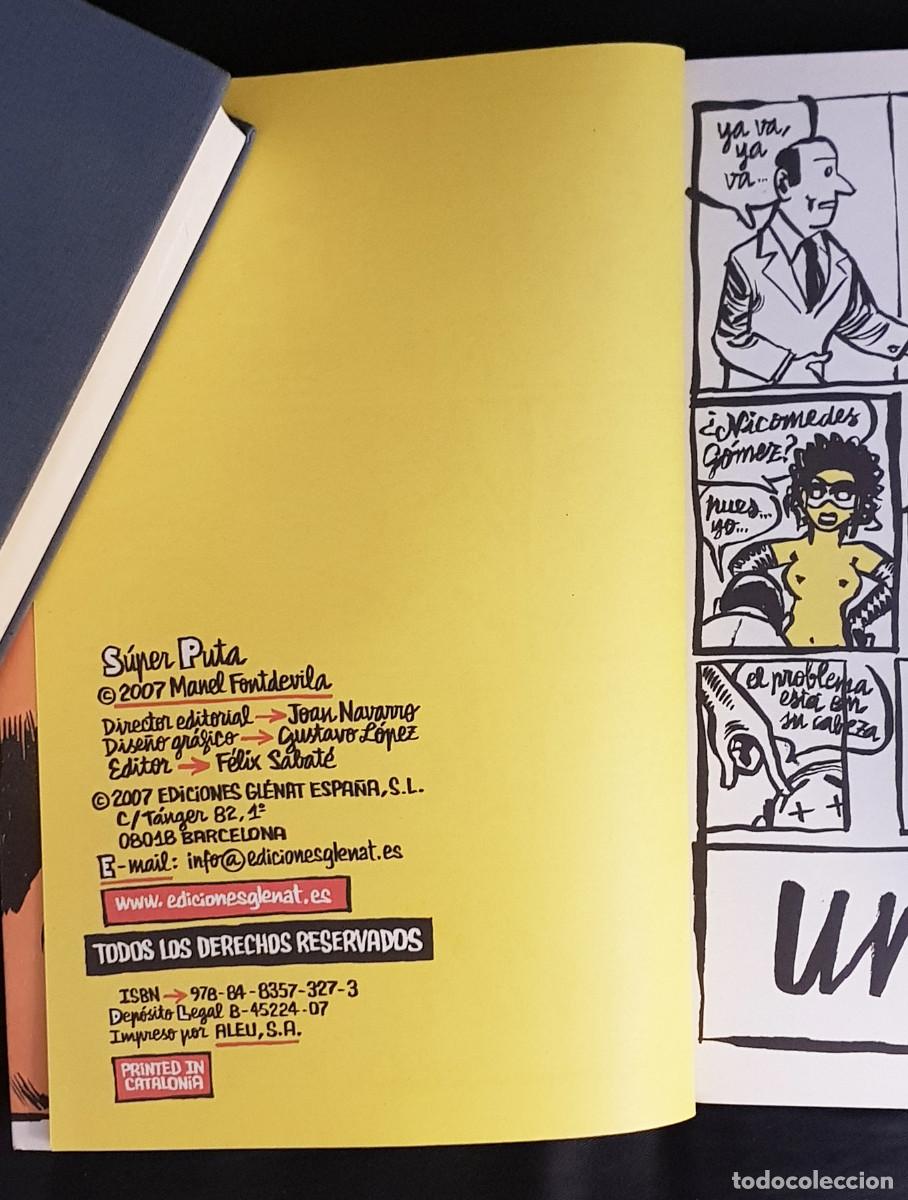 Súper Puta
© 2007 Manel Fontdevila
Director editorial → Joan Navarro
Diseño gráfico → Gustavo López
Editor → Félix Sabaté
© 2007 EDICIONES GLÉNAT ESPAÑA, S.L.
C/Tánger 82, 1º
08018 BARCELONA
E-mail: info@edicionesglenat.es
www.edicionesglenat.es
TODOS LOS DERECHOS RESERVADOS
ISBN → 978-84-8357-327-3
Depósito Legal B-45224-07
Impreso por ALEU, S.A.
PRINTED IN
CATALONIA
ya va,
ya
va...
¿Nicomedes
Gómez?
pues...
yo...
el problema
está en
su cabeza
un
todocoleccion